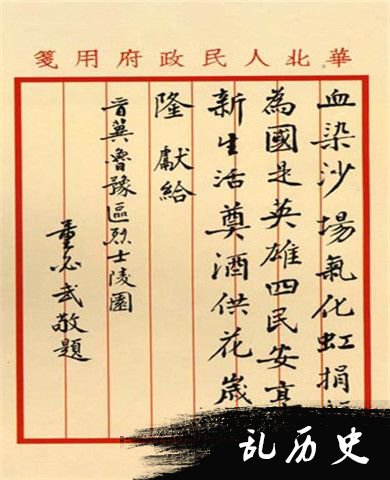 華北人民政府用箋
血染沙場氣化虹捐
為國是英雄四民安享
新生活奠酒供花歲
隆獻給
晉冀魯豫區烈士陵園
董必武敬題
乱历史